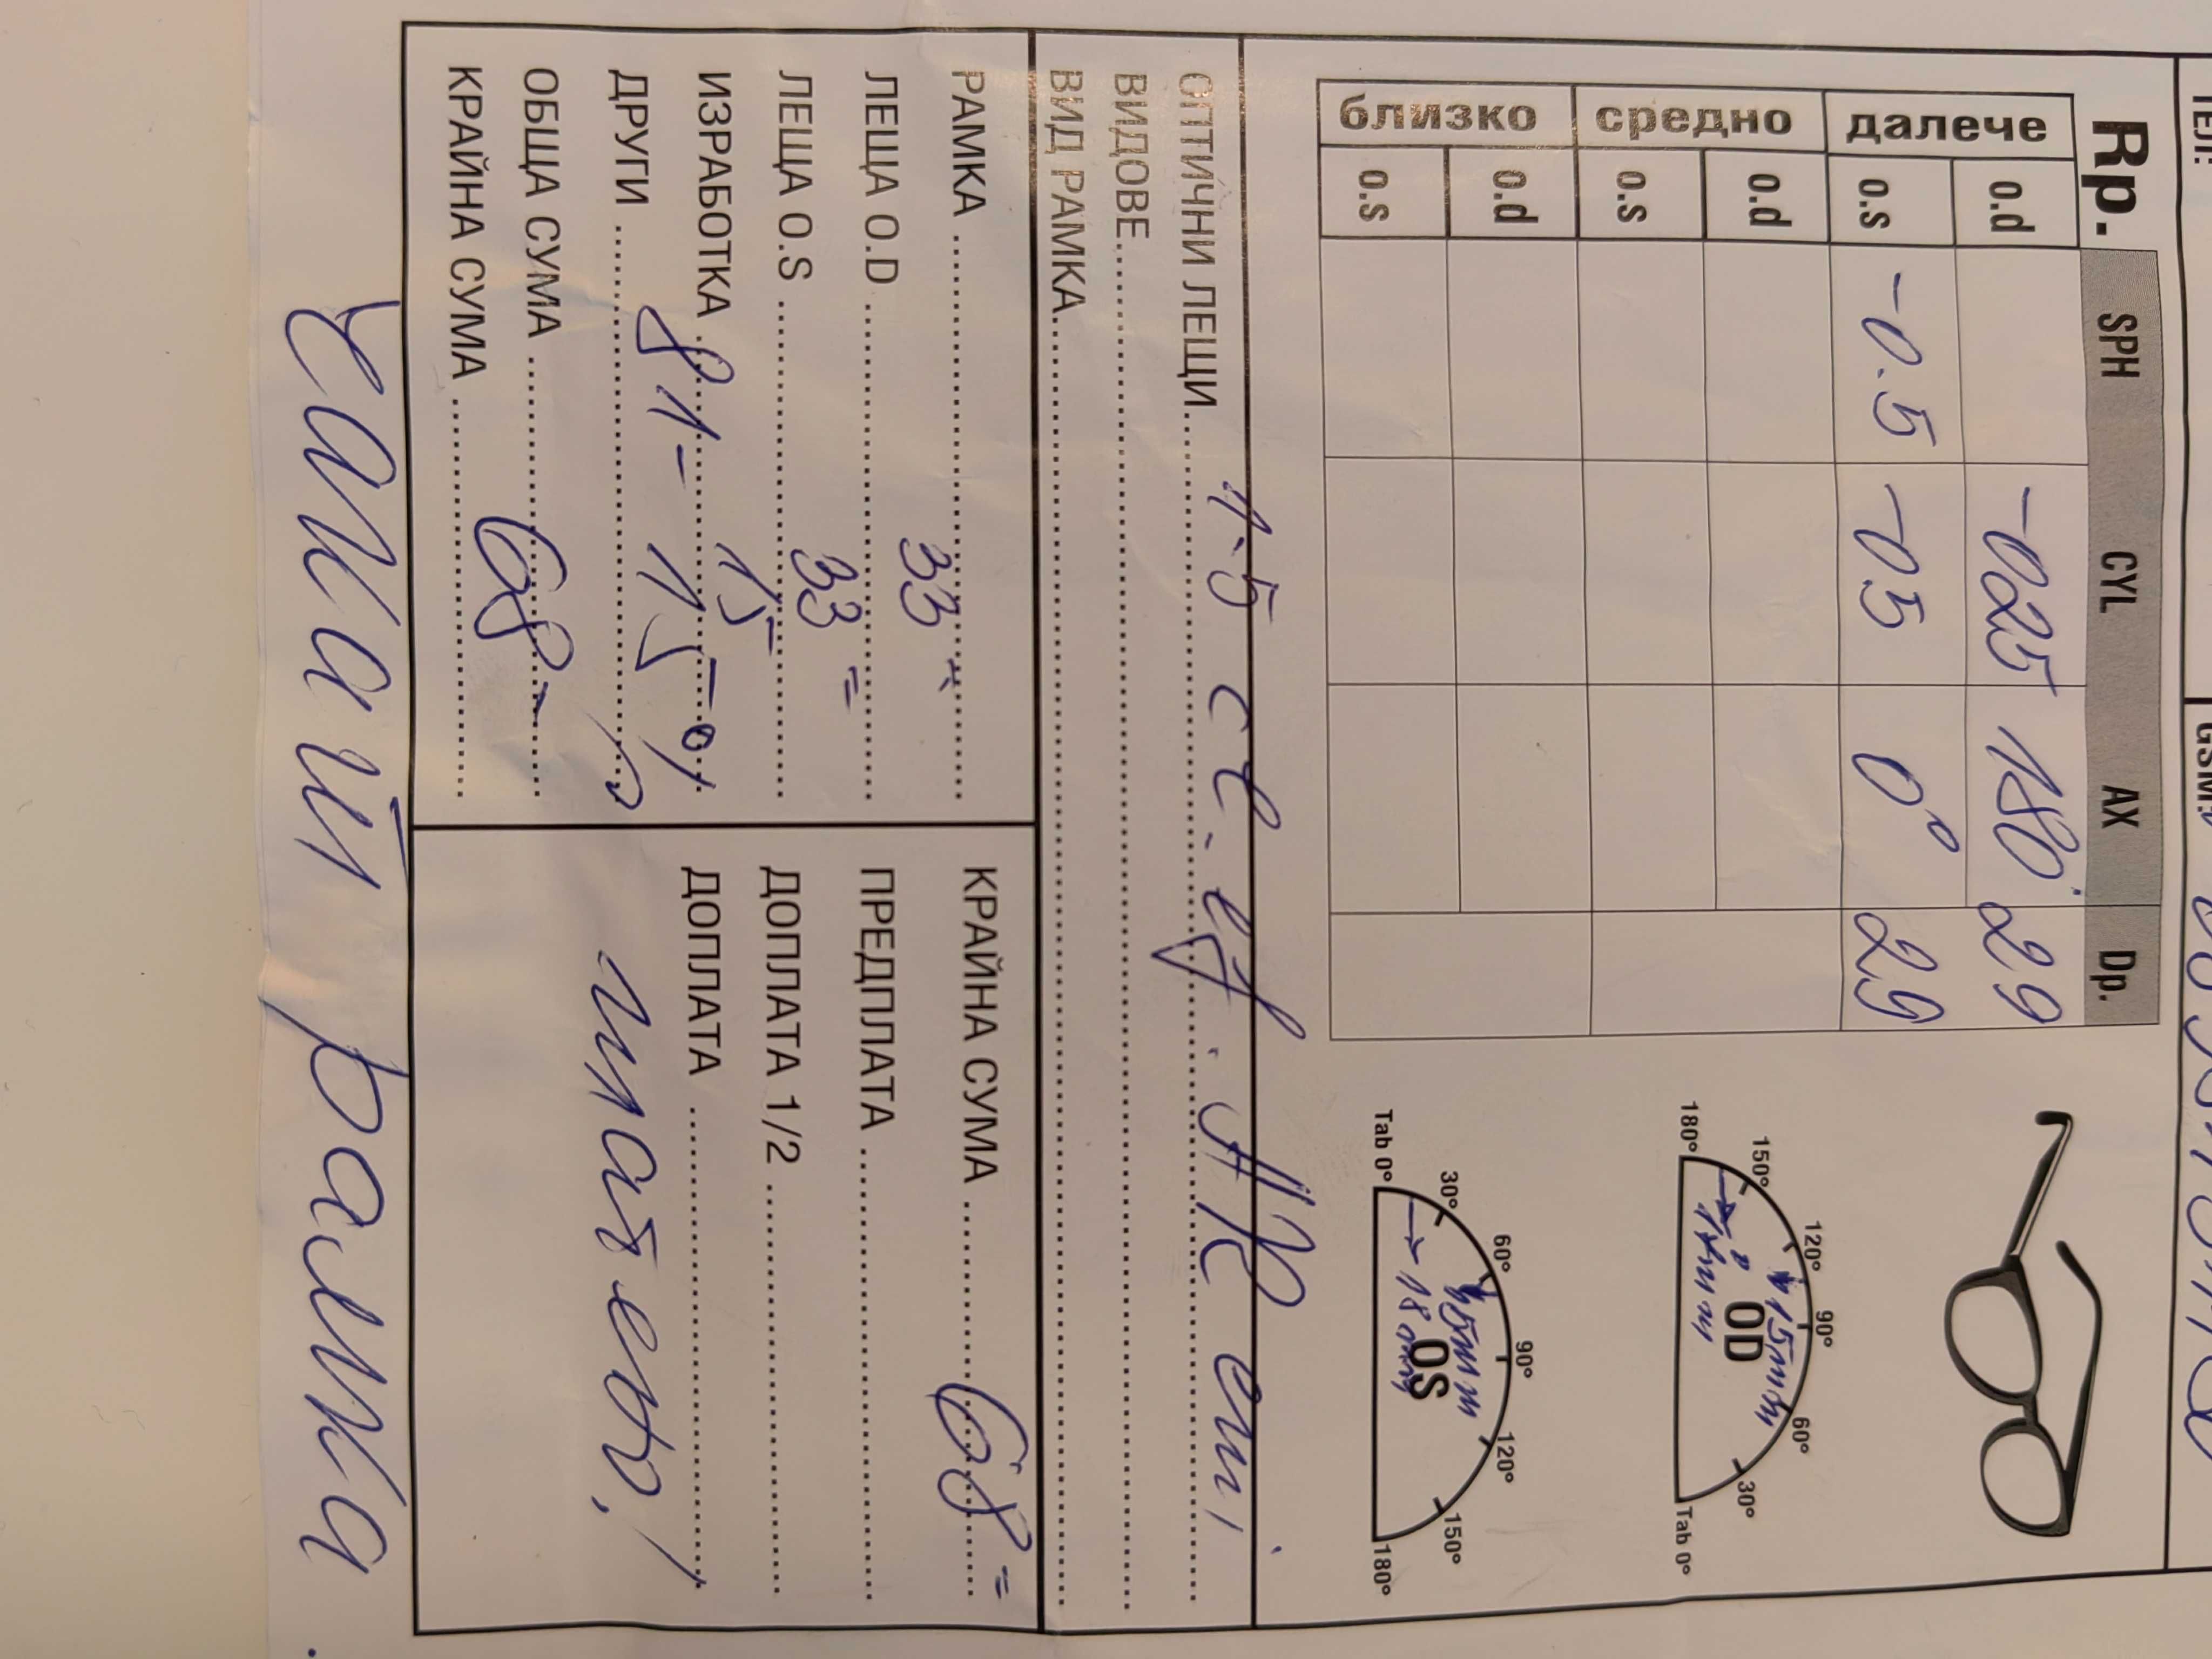 ТЕЛ:
GSM:
Rp. SPH CYL AX Dp.
далече o.d -025 180° 29
o.s -0.5 -05 0° 29
средно o.d
o.s
близко o.d
o.s
180° 150° 120° 90° 60° 30° Tab 0°
15mm
OD
Tab 0° 30° 60° 90° 120° 150° 180°
15mm
OS
18mm
ОПТИЧНИ ЛЕЩИ 1.5 AR
ВИДОВЕ
ВИД РАМКА
РАМКА
ЛЕЩА O.D 33 =
ЛЕЩА O.S 33 =
ИЗРАБОТКА 15-
ДРУГИ 81- 15%
ОБЩА СУМА 68-
КРАЙНА СУМА
КРАЙНА СУМА 68 =
ПРЕДПЛАТА
ДОПЛАТА 1/2
ДОПЛАТА
платено!
рамка